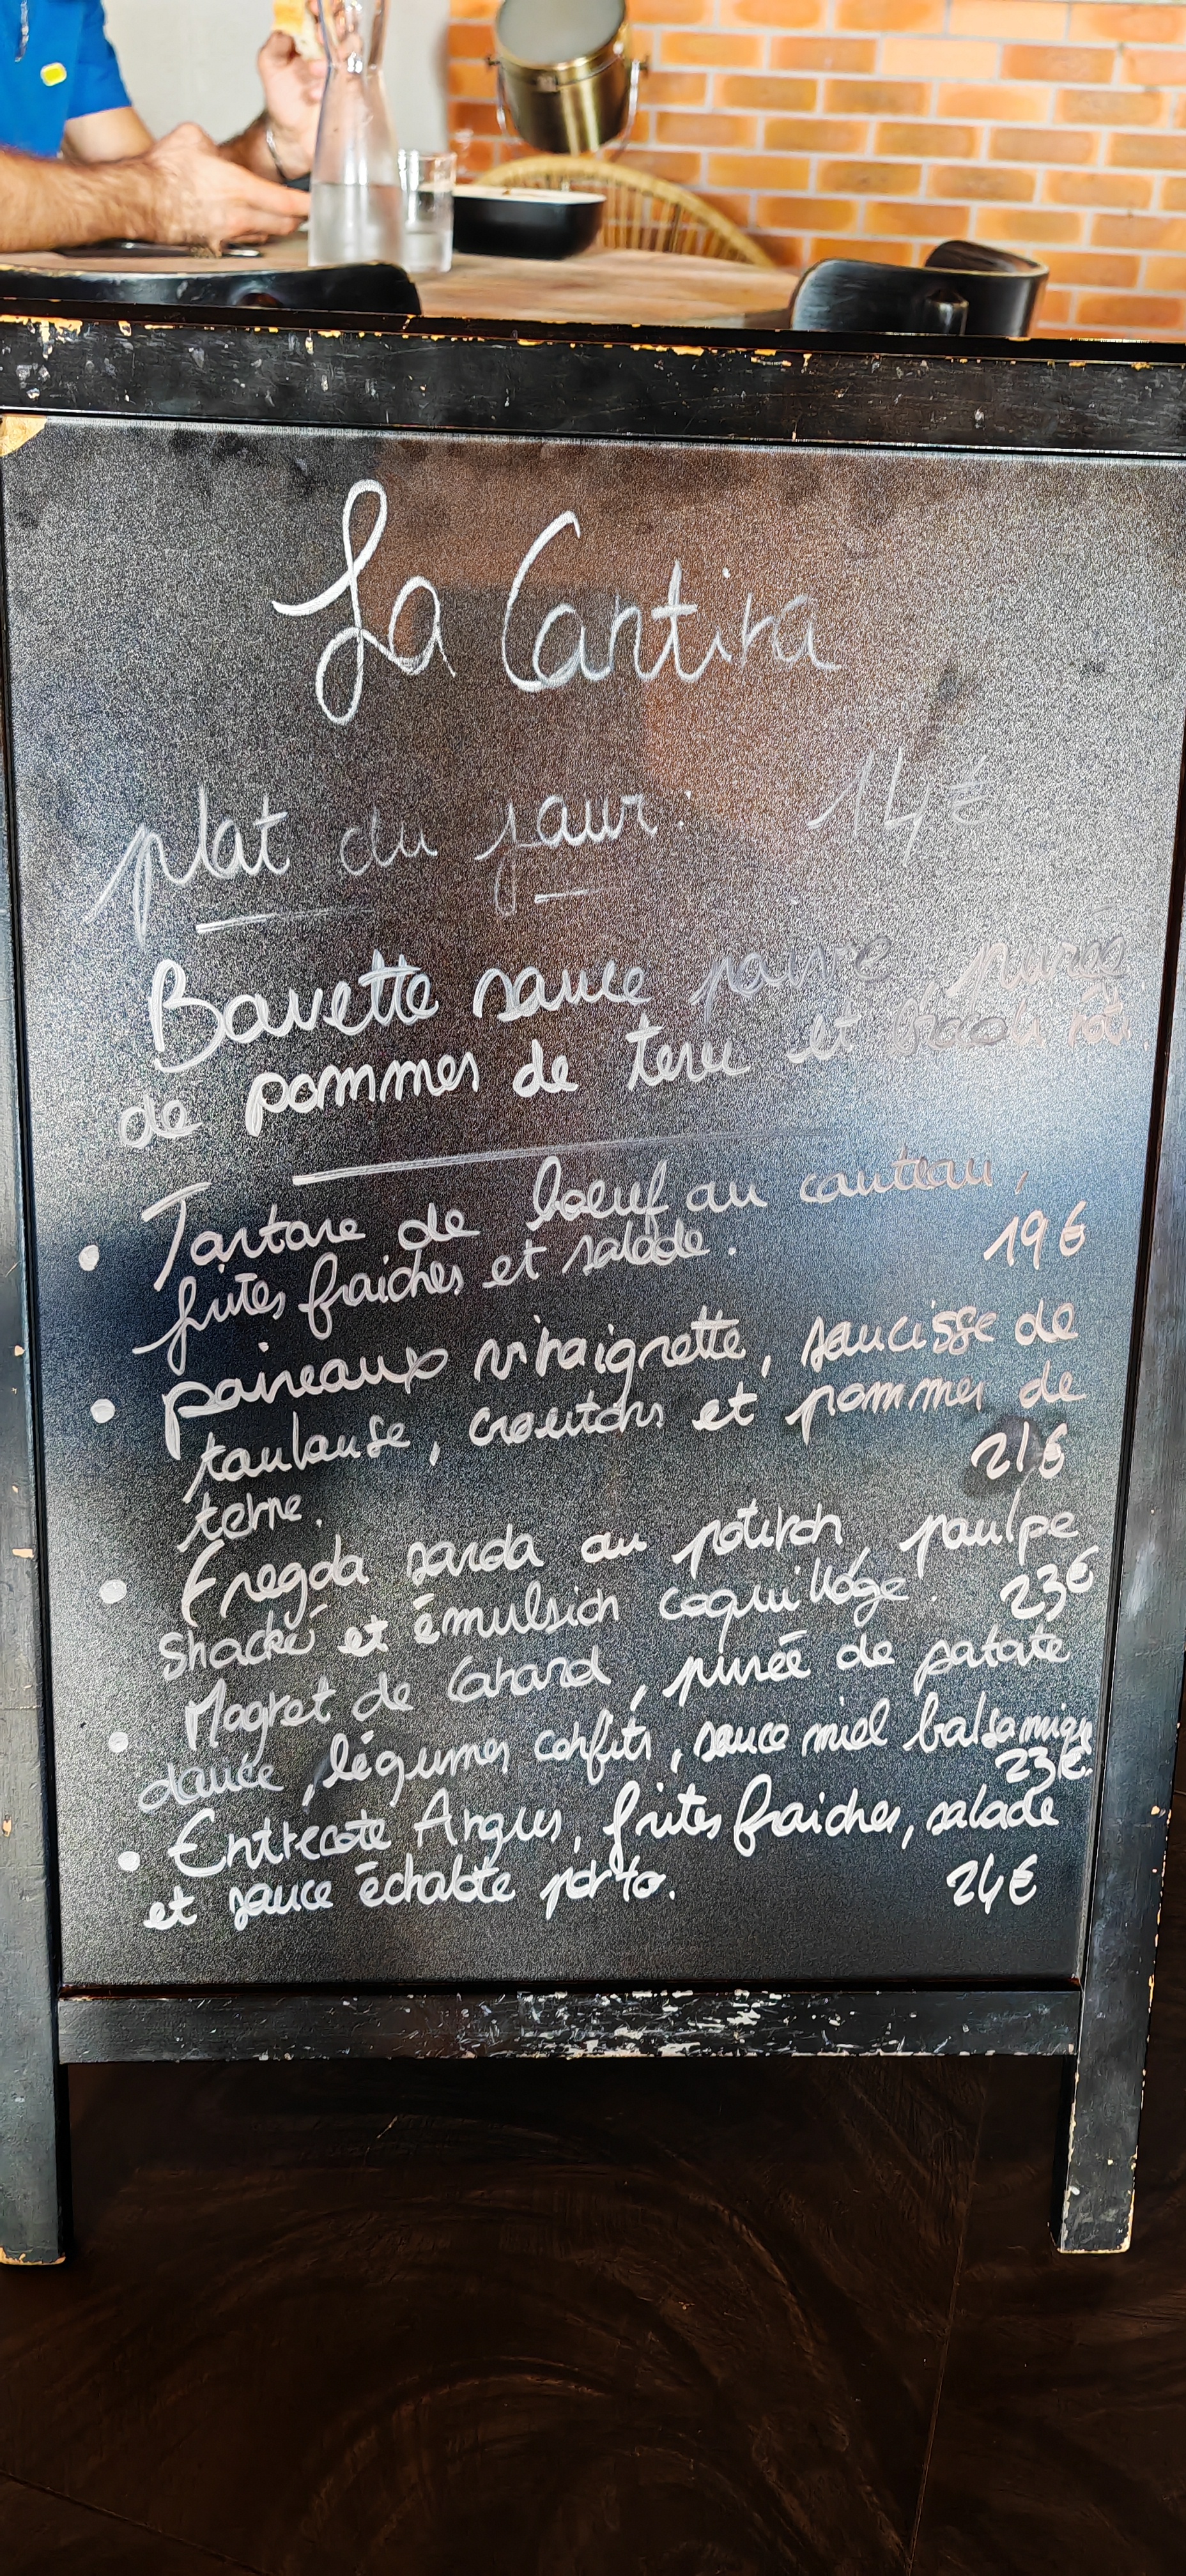 La Cantina
plat du jour : 14€
Bavette sauce poivre, purée
de pommes de terre et brocoli rôti.
• Tartare de boeuf au couteau,
frites fraiches et salade. 19€
• poireaux vinaigrette, saucisse de
toulouse, croutons et pommes de
terre. 21€
• Fregola sarda au potiron, poulpe
snacké et émulsion coquillage. 23€
• Magret de canard, purée de patate
douce, légumes confits, sauce miel balsamique
23€.
• Entrecote Angus, frites fraiches, salade
et sauce échalote porto. 24€